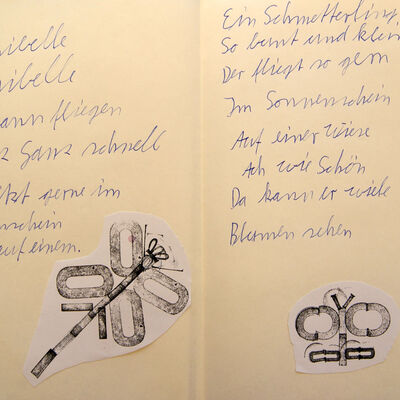 ibelle
ibelle
ann fliegen
ganz schnell
tzt gerne im
nschein
auf einem.
Ein Schmetterling
So bunt und klein
Der fliegt so gern
Im Sonnenschein
Auf einer Wiese
Ach wie Schön
Da kann er viele
Blumen sehen